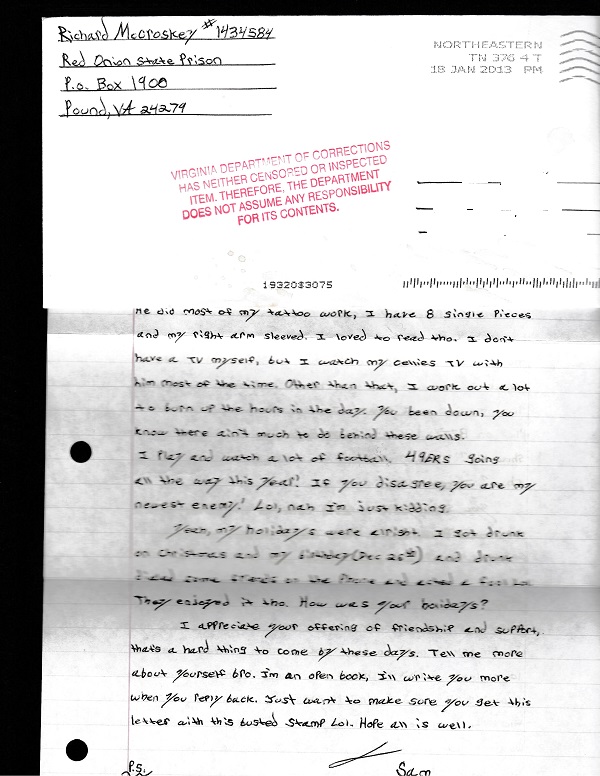 Richard Mccroskey #1434584
Red Onion State Prison
P.o. Box 1900
Pound, VA 24279
NORTHEASTERN
TN 376 4 T
18 JAN 2013 PM
VIRGINIA DEPARTMENT OF CORRECTIONS
HAS NEITHER CENSORED OR INSPECTED
ITEM. THEREFORE, THE DEPARTMENT
DOES NOT ASSUME ANY RESPONSIBILITY
FOR ITS CONTENTS.
He did most of my tattoo work, I have 8 single pieces
and my right arm sleeved. I loved to read tho. I don't
have a TV myself, but I watch my cellies TV with
him most of the time. Other than that, I work out a lot
to burn up the hours in the day. You been down, you
know there ain't much to do behind these walls.
I play and watch a lot of football. 49ERS going
all the way this year! If you disagree, you are my
newest enemy! Lol, nah I'm just kidding.
Yeah, my holidays were alright. I got drunk
on Christmas and my birthday (Dec 26th) and drunk
dialed some friends on the phone and acted a fool Lol
They enjoyed it tho. How was your holidays?
I appreciate your offering of friendship and support,
that's a hard thing to come by these days. Tell me more
about yourself bro. I'm an open book, I'll write you more
when you reply back. Just want to make sure you get this
letter with this busted stamp Lol. Hope all is well.
P.S. Sam